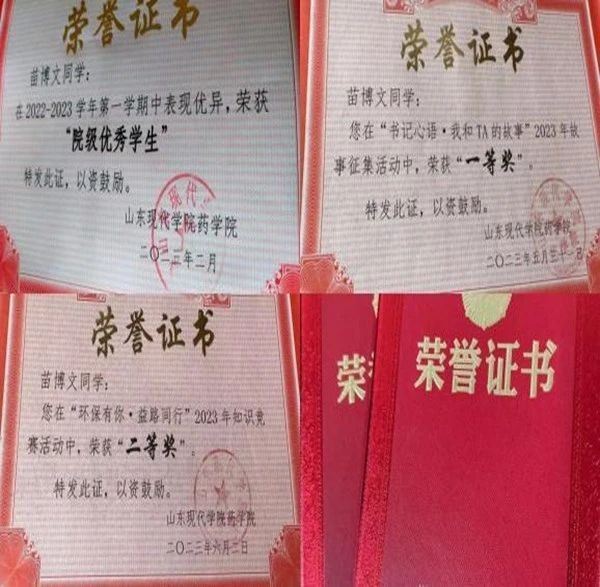 荣誉证书
苗博文同学：
在2022-2023学年第一学期中表现优异，荣获
“院级优秀学生”
特发此证，以资鼓励。
山东现代学院药学院
二〇二三年二月
荣誉证书
苗博文同学：
您在“书记心语·我和TA的故事”2023年故
事征集活动中，荣获“一等奖”。
特发此证，以资鼓励。
山东现代学院药学院
二〇二三年五月三十一日
荣誉证书
苗博文同学：
您在“环保有你·益路同行”2023年知识竞
赛活动中，荣获“二等奖”。
特发此证，以资鼓励。
山东现代学院药学院
二〇二三年六月二日
荣誉
荣誉证书